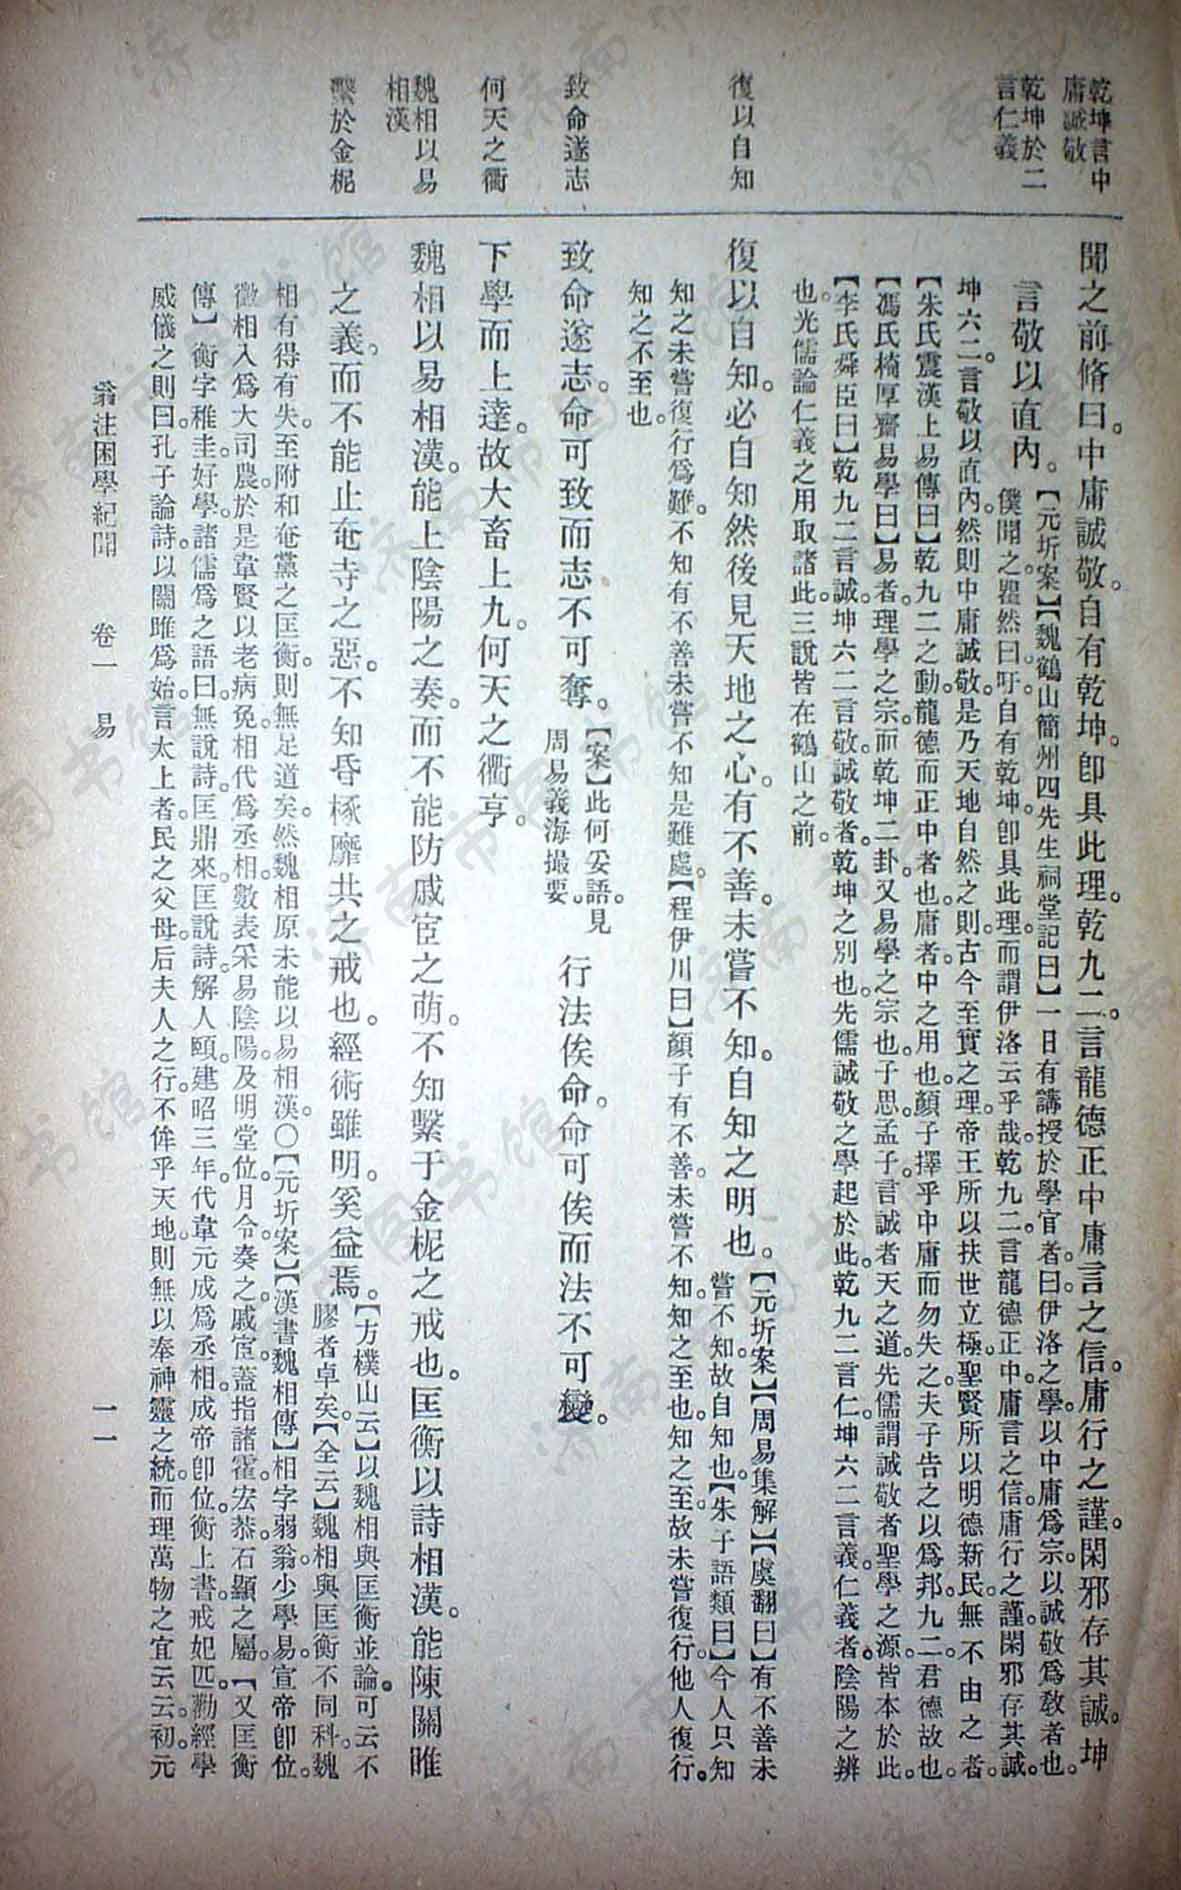 乾坤言中
庸誠敬
乾坤於二
言仁義
復以自知
致命遂志
何天之衢
魏相以易
相漢
繫於金柅
聞之前脩曰。中庸誠敬。自有乾坤。卽具此理。乾九二。言龍德正中。庸言之信。庸行之謹。閑邪存其誠。坤
言敬以直內。
【元圻案】【魏鶴山簡州四先生祠堂記曰】一日有講授於學官者。曰伊洛之學。以中庸爲宗。以誠敬爲敎者也。
僕聞之。瞿然曰。吁。自有乾坤。卽具此理。而謂伊洛云乎哉。乾九二。言龍德正中。庸言之信。庸行之謹。閑邪存其誠。
坤六二。言敬以直內。然則中庸誠敬。是乃天地自然之則。古今至實之理。帝王所以扶世立極。聖賢所以明德新民。無不由之者。
【朱氏震漢上易傳曰】乾九二之動。龍德而正中者也。庸者。中之用也。顏子擇乎中庸而勿失之。夫子告之以爲邦。九二君德故也。
【馮氏椅厚齋易學曰】易者。理學之宗。而乾坤二卦。又易學之宗也。子思。孟子。言誠者天之道。先儒謂誠敬者聖學之源。皆本於此。
【李氏舜臣曰】乾九二言誠。坤六二言敬。誠敬者。乾坤之別也。先儒誠敬之學起於此。乾九二言仁。坤六二言義。仁義者。陰陽之辨
也。光儒論仁義之用取諸此。三說皆在鶴山之前。
復以自知。必自知然後見天地之心。有不善。未嘗不知。自知之明也。
【元圻案】【周易集解】【虞翻曰】有不善未
嘗不知。故自知也。【朱子語類曰】今人只知
知之未嘗復行爲難。不知有不善未嘗不知是難處。【程伊川曰】顏子有不善。未嘗不知。知之至也。知之至。故未嘗復行。他人復行。
知之不至也。
致命遂志。命可致而志不可奪。
【案】此何妥語。見
周易義海撮要。
行法俟命。命可俟而法不可變。
下學而上達。故大畜上九。何天之衢亨。
魏相以易相漢。能上陰陽之奏。而不能防戚宦之萌。不知繫于金柅之戒也。匡衡以詩相漢。能陳關雎
之義。而不能止奄寺之惡。不知昏椓靡共之戒也。經術雖明。奚益焉。
【方樸山云】以魏相與匡衡並論。可云不
膠者卓矣。【全云】魏相與匡衡不同科。魏
相有得有失。至附和奄黨之匡衡。則無足道矣。然魏相原未能以易相漢。〇【元圻案】【漢書魏相傳】相字弱翁。少學易。宣帝卽位。
徵相入爲大司農。於是韋賢以老病免。相代爲丞相。數表采易陰陽。及明堂位。月令。奏之。戚宦。蓋指諸霍。宏恭。石顯之屬。【又匡衡
傳】衡字稚圭。好學。諸儒爲之語曰。無說詩。匡鼎來。匡說詩。解人頤。建昭三年。代韋元成爲丞相。成帝卽位。衡上書。戒妃匹。勸經學
威儀之則曰。孔子論詩。以關雎爲始。言太上者。民之父母。后夫人之行。不侔乎天地。則無以奉神靈之統。而理萬物之宜云云。初。元
翁注困學紀聞　卷一　易　一一